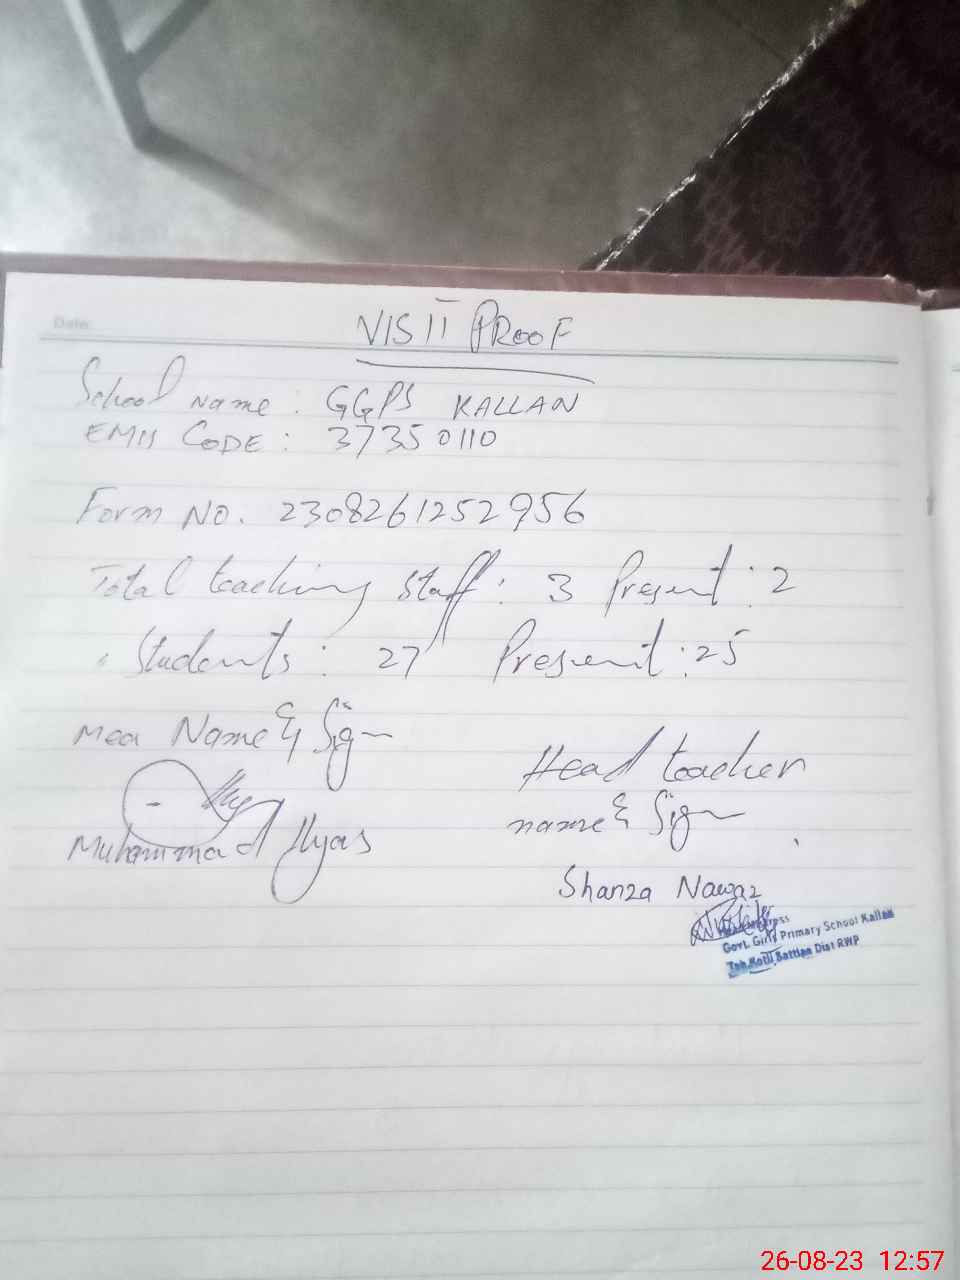 Date:
VISIT PROOF
School Name : GGPS KALLAN
EMIS CODE : 37350110
Form NO. 2308261252956
Total teaching Staff : 3 Present : 2
" Students : 27 Present : 25
Mea Name & Sign
Head teacher
name & Sign
Muhammad Ilyas
Shanza Nawaz
Govt. Girls Primary School Kallan
Teh Kotli Sattian Dist RWP
26-08-23 12:57